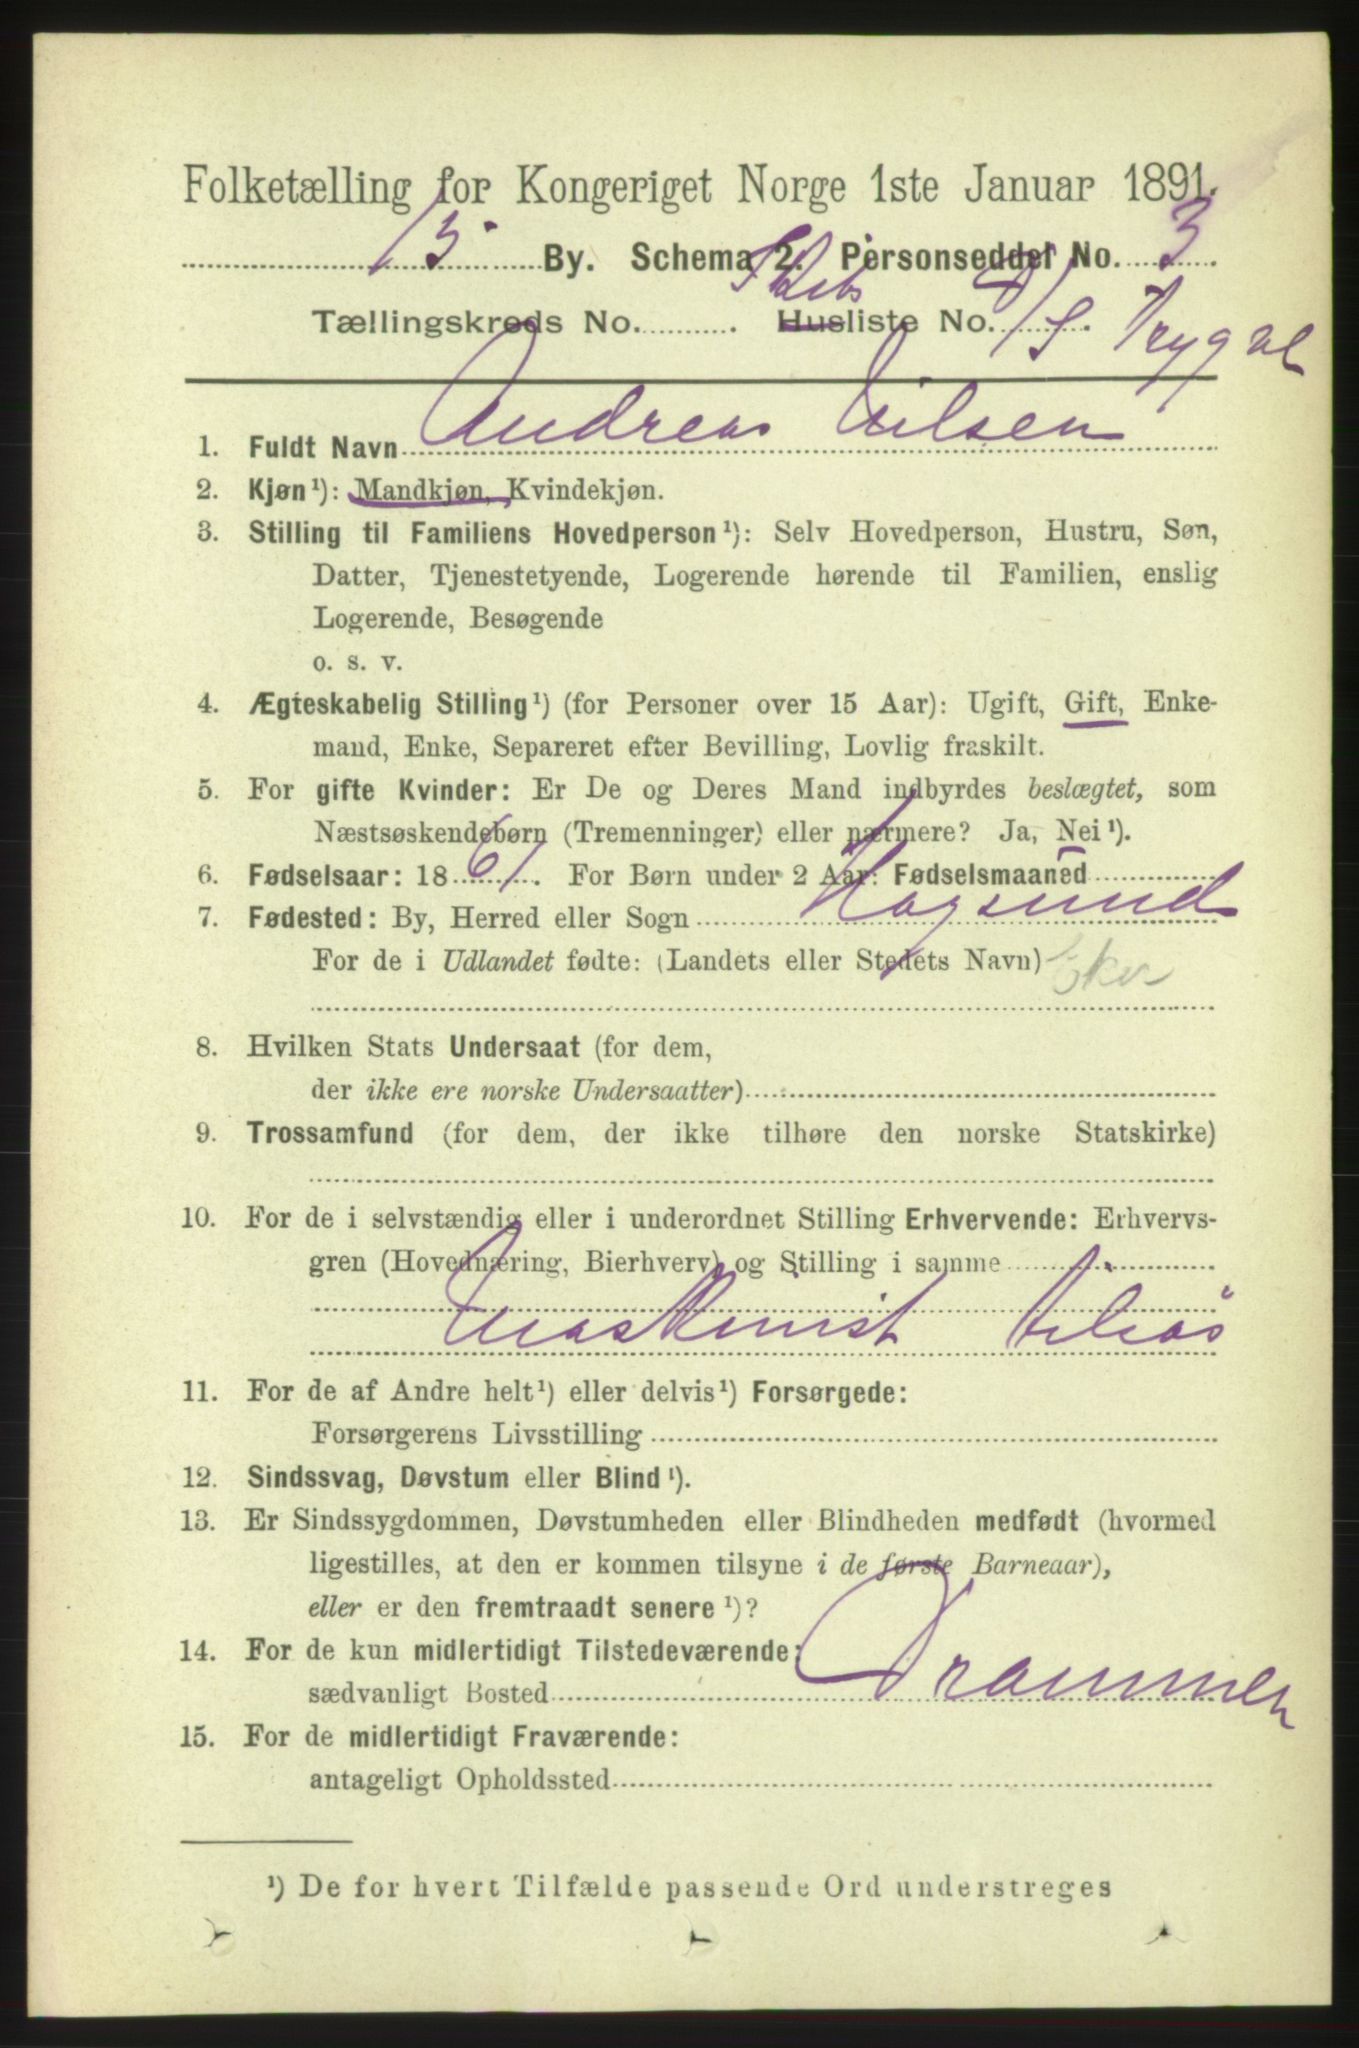 Folketælling for Kongeriget Norge 1ste Januar 1891.
13 By. Schema 2. Personseddel No. 3
Skibs
Tællingskreds No. . Husliste No. D/S Trygve
1. Fuldt Navn Andreas Nilsen
2. Kjøn¹): Mandkjøn, Kvindekjøn.
3. Stilling til Familiens Hovedperson¹): Selv Hovedperson, Hustru, Søn,
Datter, Tjenestetyende, Logerende hørende til Familien, enslig
Logerende, Besøgende
o. s. v.
4. Ægteskabelig Stilling¹) (for Personer over 15 Aar): Ugift, Gift, Enke-
mand, Enke, Separeret efter Bevilling, Lovlig fraskilt.
5. For gifte Kvinder: Er De og Deres Mand indbyrdes beslægtet, som
Næstsøskendebørn (Tremenninger) eller nærmere? Ja, Nei¹).
6. Fødselsaar: 1861. For Børn under 2 Aar: Fødselsmaaned
7. Fødested: By, Herred eller Sogn Hogsund
For de i Udlandet fødte: (Landets eller Stedets Navn) Eker
8. Hvilken Stats Undersaat (for dem,
der ikke ere norske Undersaatter)
9. Trossamfund (for dem, der ikke tilhøre den norske Statskirke)
10. For de i selvstændig eller i underordnet Stilling Erhvervende: Erhvervs-
gren (Hovednæring, Bierhverv) og Stilling i samme
Maskinist tilsøs
11. For de af Andre helt¹) eller delvis¹) Forsørgede:
Forsørgerens Livsstilling
12. Sindssvag, Døvstum eller Blind¹).
13. Er Sindssygdommen, Døvstumheden eller Blindheden medfødt (hvormed
ligestilles, at den er kommen tilsyne i de første Barneaar),
eller er den fremtraadt senere¹)?
14. For de kun midlertidigt Tilstedeværende:
sædvanligt Bosted Drammen
15. For de midlertidigt Fraværende:
antageligt Opholdssted
¹) De for hvert Tilfælde passende Ord understreges